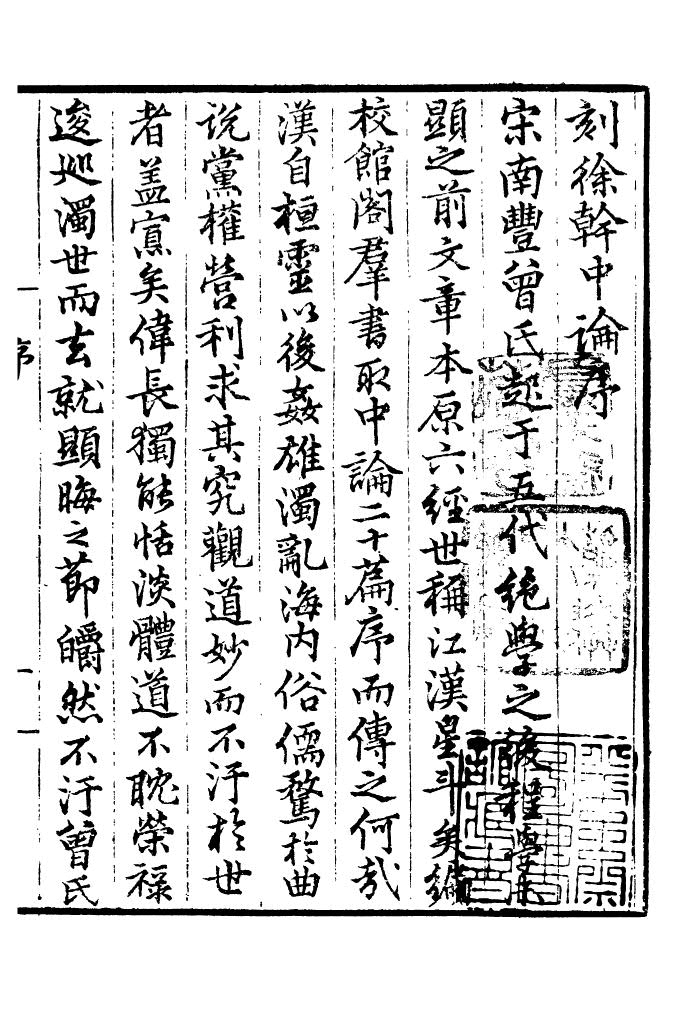 刻徐幹中論序
宋南豐曾氏起于五代絕學之後程學未
顯之前文章本原六經世稱江漢星斗矣編
校館閣羣書取中論二十篇序而傳之何哉
漢自桓靈以後姦雄濁亂海内俗儒騖於曲
说黨權營利求其究觀道妙而不汙於世
者盖寡矣偉長獨能恬淡體道不耽榮禄
逡巡濁世而去就顯晦之節皭然不汙曾氏
序
一